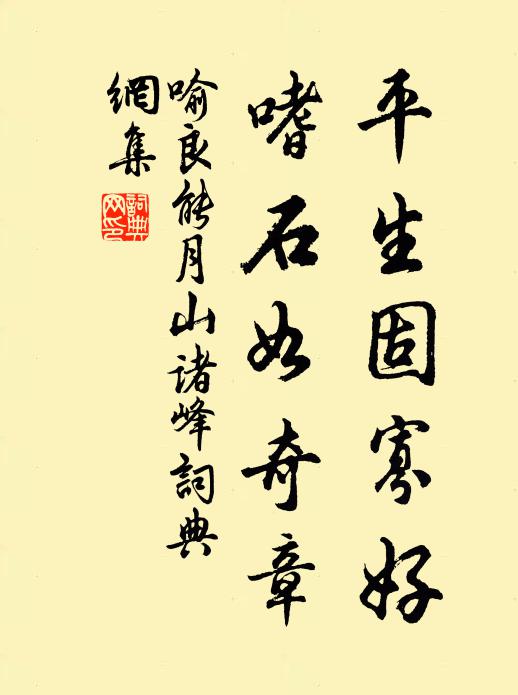 平生固寡好
嗜石如奇章
喻良能月山诸峰詞典
網集
詞典
网印